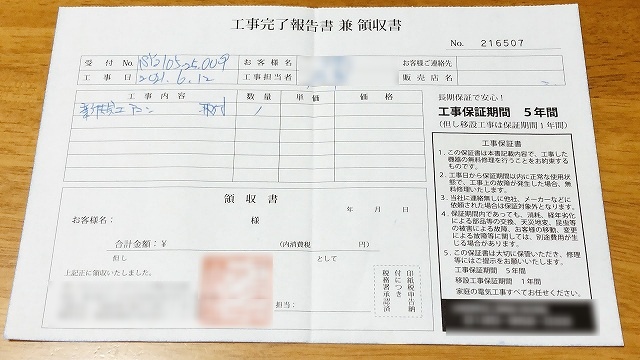 工事完了報告書 兼 領収書
No. 216507
受付No. お客様名 お客様ご連絡先
工事日 2021.6.12 工事担当者 販売店名
工事内容 数量 単価 価格
新規エアコン 取付 1
長期保証で安心！
工事保証期間 5年間
(但し移設工事は保証期間1年間)
工事保証書
1. この保証書は本書記載内容で、工事した
機器の無料修理を行うことをお約束する
ものです。
2. 工事日から保証期間以内に正常な使用状
態で、工事上の故障が発生した場合、無
料修理いたします。
3. 当社に連絡無しに他社、メーカーなどに
依頼された場合は保証対象外となります。
4. 保証期間内であっても、消耗、経年劣化
による部品等の交換、天災地変、昆虫等
の被害による故障、お客様の移動、変更
による故障等に関しては、別途費用が生
じる場合があります。
5. この保証書は大切に保管いただき、修理
等にはご提示をお願いいたします。
工事保証期間 5年間
移設工事保証期間 1年間
家庭の電気工事すべてお任せください。
領収書
年 月 日
お客様名： 様
合計金額：¥ (内消費税 円)
但し として
上記正に領収いたしました。
担当：
印紙税申告納
付につき
税務署承認済